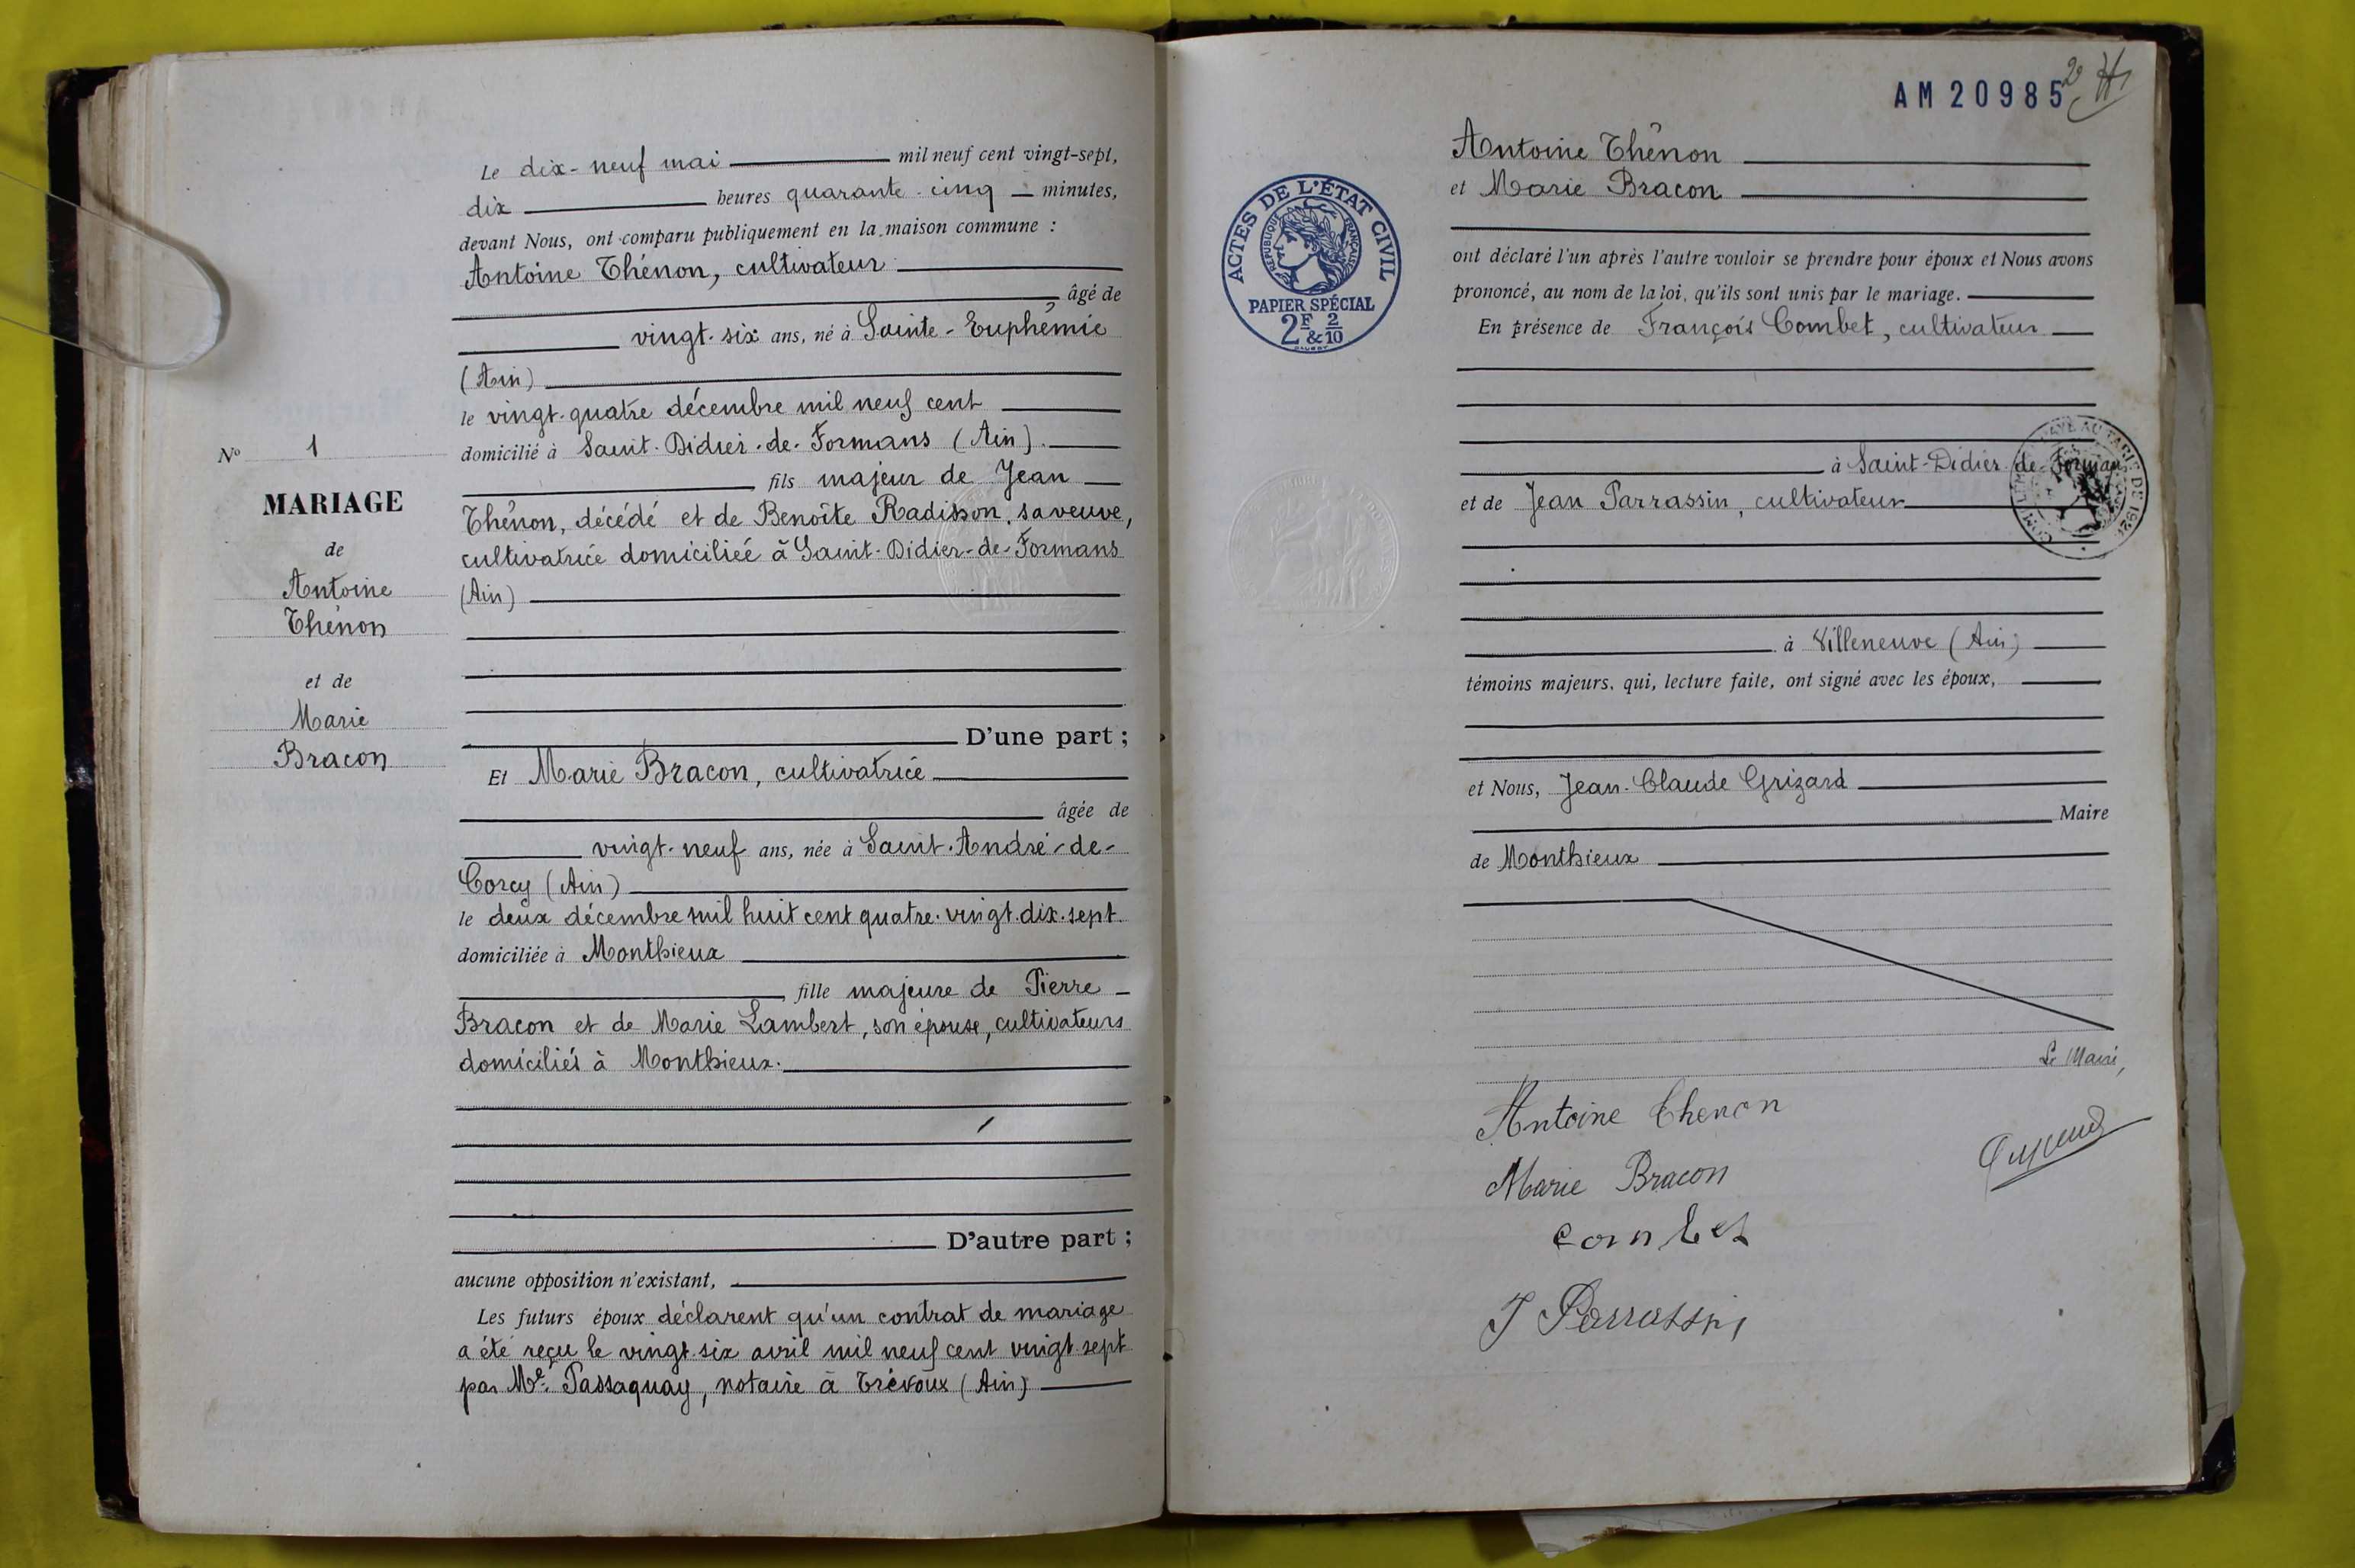 Le dix-neuf mai mil neuf cent vingt-sept,
dix heures quarante-cinq minutes,
devant Nous, ont comparu publiquement en la maison commune :
Antoine Thénon, cultivateur
âgé de
vingt-six ans, né à Sainte-Euphémie
(Ain)
le vingt-quatre décembre mil neuf cent
domicilié à Saint-Didier-de-Formans (Ain).
fils majeur de Jean
Thénon, décédé et de Benoîte Radisson, sa veuve,
cultivatrice domiciliée à Saint-Didier-de-Formans
(Ain)
D'une part ;
Et Marie Bracon, cultivatrice
âgée de
vingt-neuf ans, née à Saint-André-de-
Corcy (Ain)
le deux décembre mil huit cent quatre-vingt-dix-sept
domiciliée à Monthieux
fille majeure de Pierre
Bracon et de Marie Lambert, son épouse, cultivateurs
domiciliés à Monthieux.
D'autre part ;
aucune opposition n'existant,
Les futurs époux déclarent qu'un contrat de mariage
a été reçu le vingt-six avril mil neuf cent vingt-sept
par Me. Passaquay, notaire à Trévoux (Ain)
No 1
MARIAGE
de
Antoine
Thénon
et de
Marie
Bracon
AM 20985
ACTES DE L'ÉTAT CIVIL
RÉPUBLIQUE FRANÇAISE
PAPIER SPÉCIAL
2F & 2/10
Antoine Thénon
et Marie Bracon
ont déclaré l'un après l'autre vouloir se prendre pour époux et Nous avons
prononcé, au nom de la loi, qu'ils sont unis par le mariage.
En présence de François Combet, cultivateur
à Saint-Didier-de-Formans
et de Jean Parrassin, cultivateur
à Villeneuve (Ain)
témoins majeurs, qui, lecture faite, ont signé avec les époux,
et Nous, Jean-Claude Grizard
Maire
de Monthieux
Le Maire,
Antoine Thenon
Marie Bracon
Combet
J Parrassin